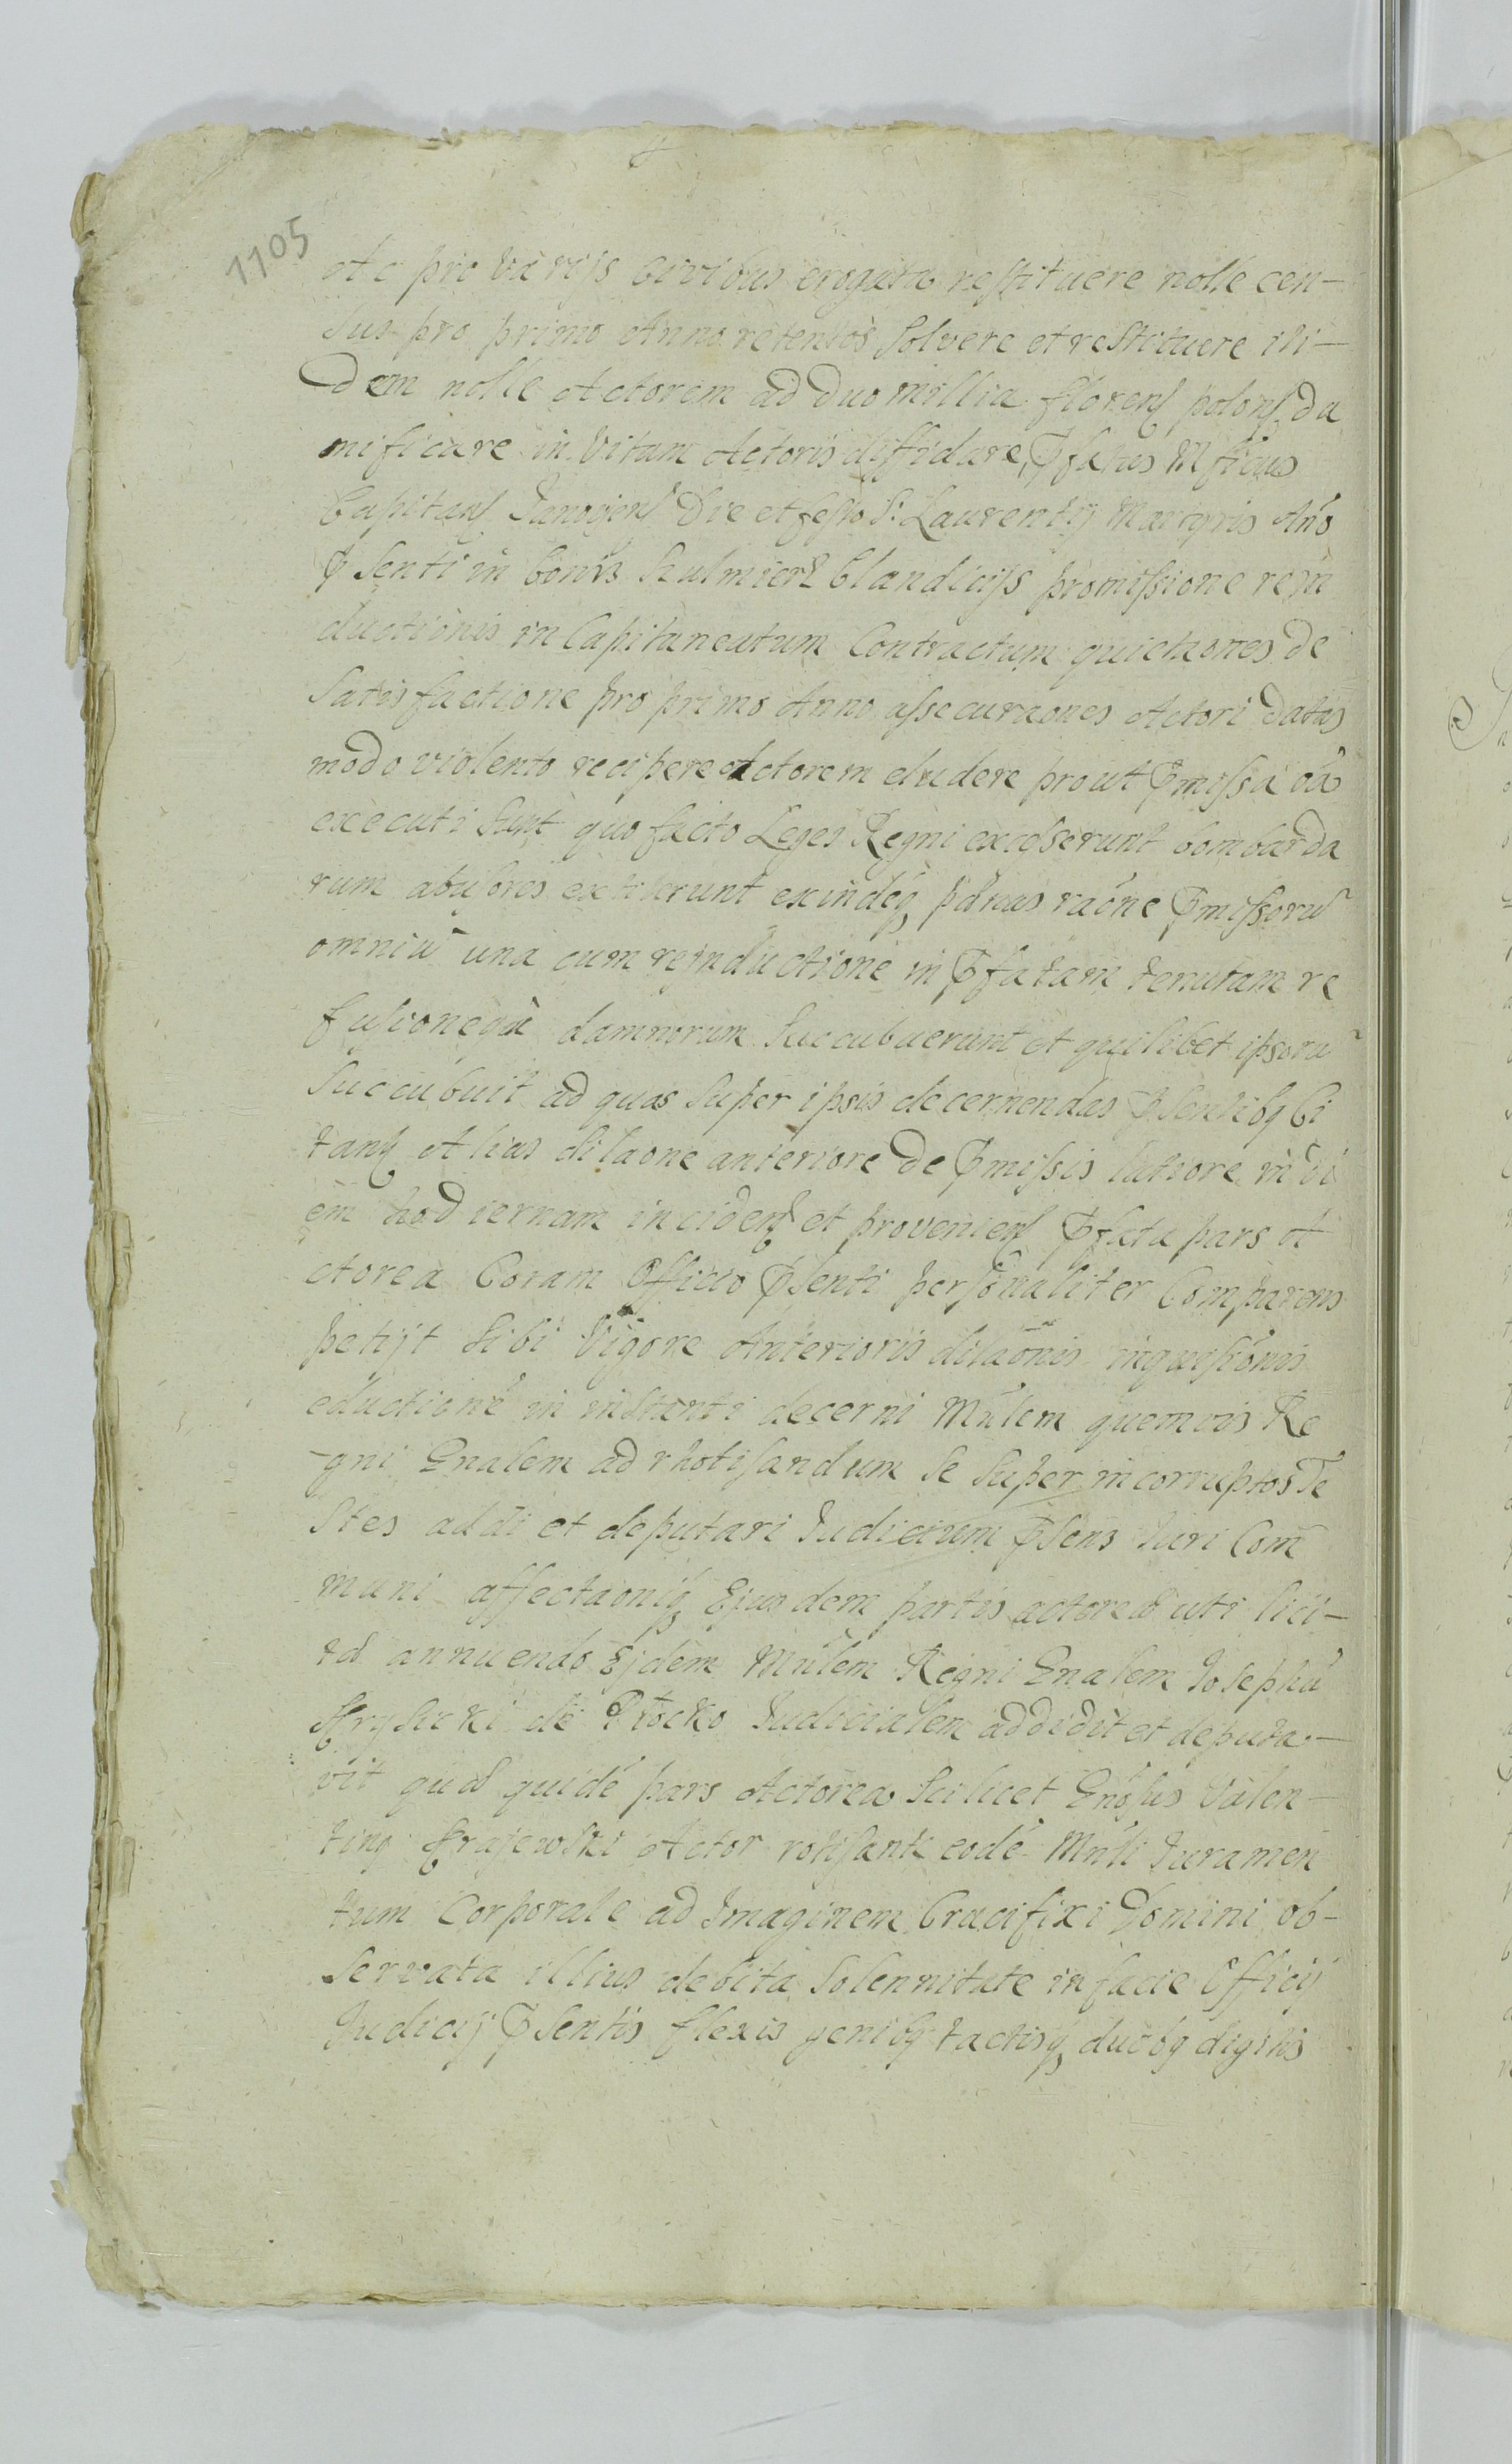 1105
Ac pro varijs Civibus erogata restituere nolle cen-
sus pro primo Anno retentos solvere et restituere ibi-
dem nolle Actorem ad duo millia florenſ polonſ da
mificare in Vitam Actoris diffidare, Pfatus Mficus
Capitanſ Die et festo S: Laurentij Martyris Ańo
Psenti in bonis Blandicijs promissione rejn
ductionis in Capitaneatum Contractum quictaones de
satisfactione pro primo Anno assecuraones Actori datas
modo violento recipere Actorem eludere prout Pmissa oa
executi sunt quo facto Leges Regni excesserunt bombarda
rum abusores extiterunt exindeq paenas raóne Pmissorũ
omniũ una cum rejnductione in Pfatam tenutam re
fusioneque damnorum succubuerunt et quilibet ipsorũ
succubuit ad quas super ipsis decernendas Psentibq Ci
tanſ Alias dilaone anteriore de Pmissis latiore in di
em hodiernam incidenſ et provenienſ Pfata pars A
ctorea Coram Officio Psenti personaliter Comparens
petijt sibi Vigore Anterioris dilaonis inquisitionis
eductioné in instanti decerni Mńlem quemvis Re
gni Gnalem ad rhotisandum se super incorruptos Te
stes addi et deputari Judicium Psens Juri Com
muni affectaoniq Ejusdem partis actoreæ uti lici-
tæ annuendo Ejdem Mńlem Regni Gnalem Josephũ
Krysicki de Plocko Judicialem addidit et deputa-
vit quæ quidé pars Actorea scilicet Gnósus Valen-
tinq Krajewski Actor rotisante eodé Mńli Juramen
tum Corporale ad Imaginem Crucifixi Domini ob-
servata illius debita solennitate in facie Officij
Judicij Psentis flexis genibq tactisq duobq digitis